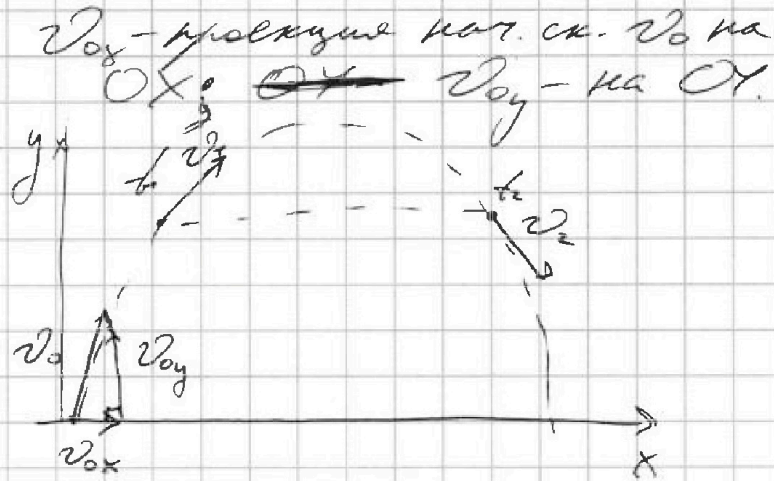 V₀ₓ - проекция нач. ск. V₀ на
OX; V₀y - на OY.
y
t₁ V₁
t₂
V₂
V₀ V₀y
V₀ₓ
x